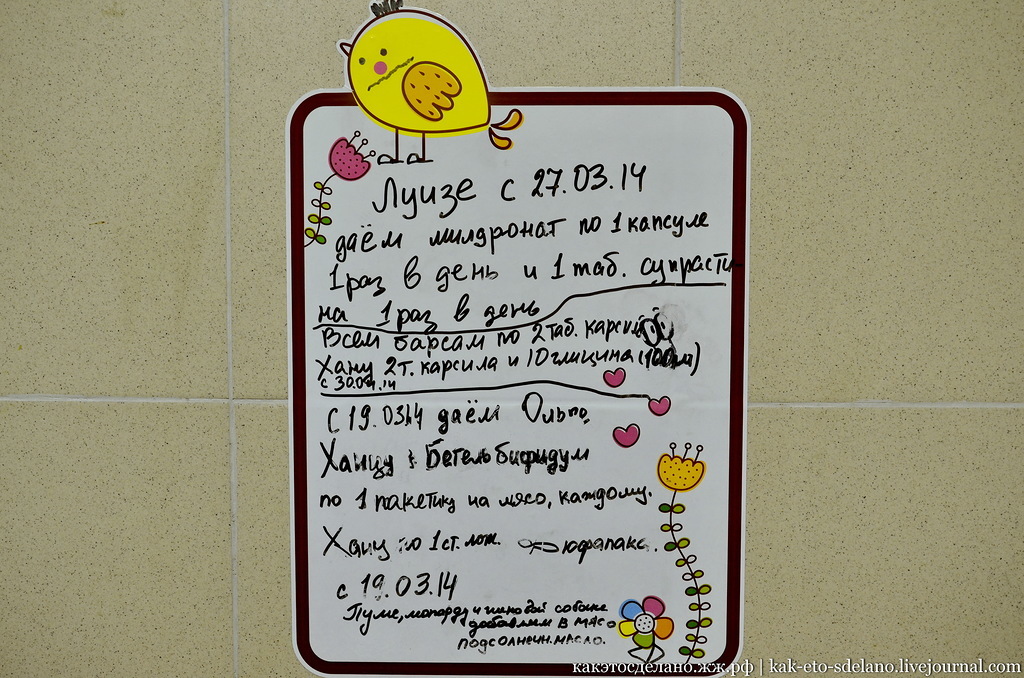 Луизе с 27.03.14
даём милдронат по 1 капсуле
1 раз в день и 1 таб. супрасти
на 1 раз в день
Всем барсам по 2 таб. карсил
Хану 2 т. карсила и 10 глицина (100мг)
с 30.04.14
С 19.0314 даём Ольпо.
Ханцу Бетель бифидум
по 1 пакетику на мясо, каждому.
Ханцу по 1 ст. лож.
с 19.03.14
Пуме, леопарду и гиеновой собаке
добавляем в мясо
подсолнечн. масло.
какэтосделано.жж.рф | kak-eto-sdelano.livejournal.com